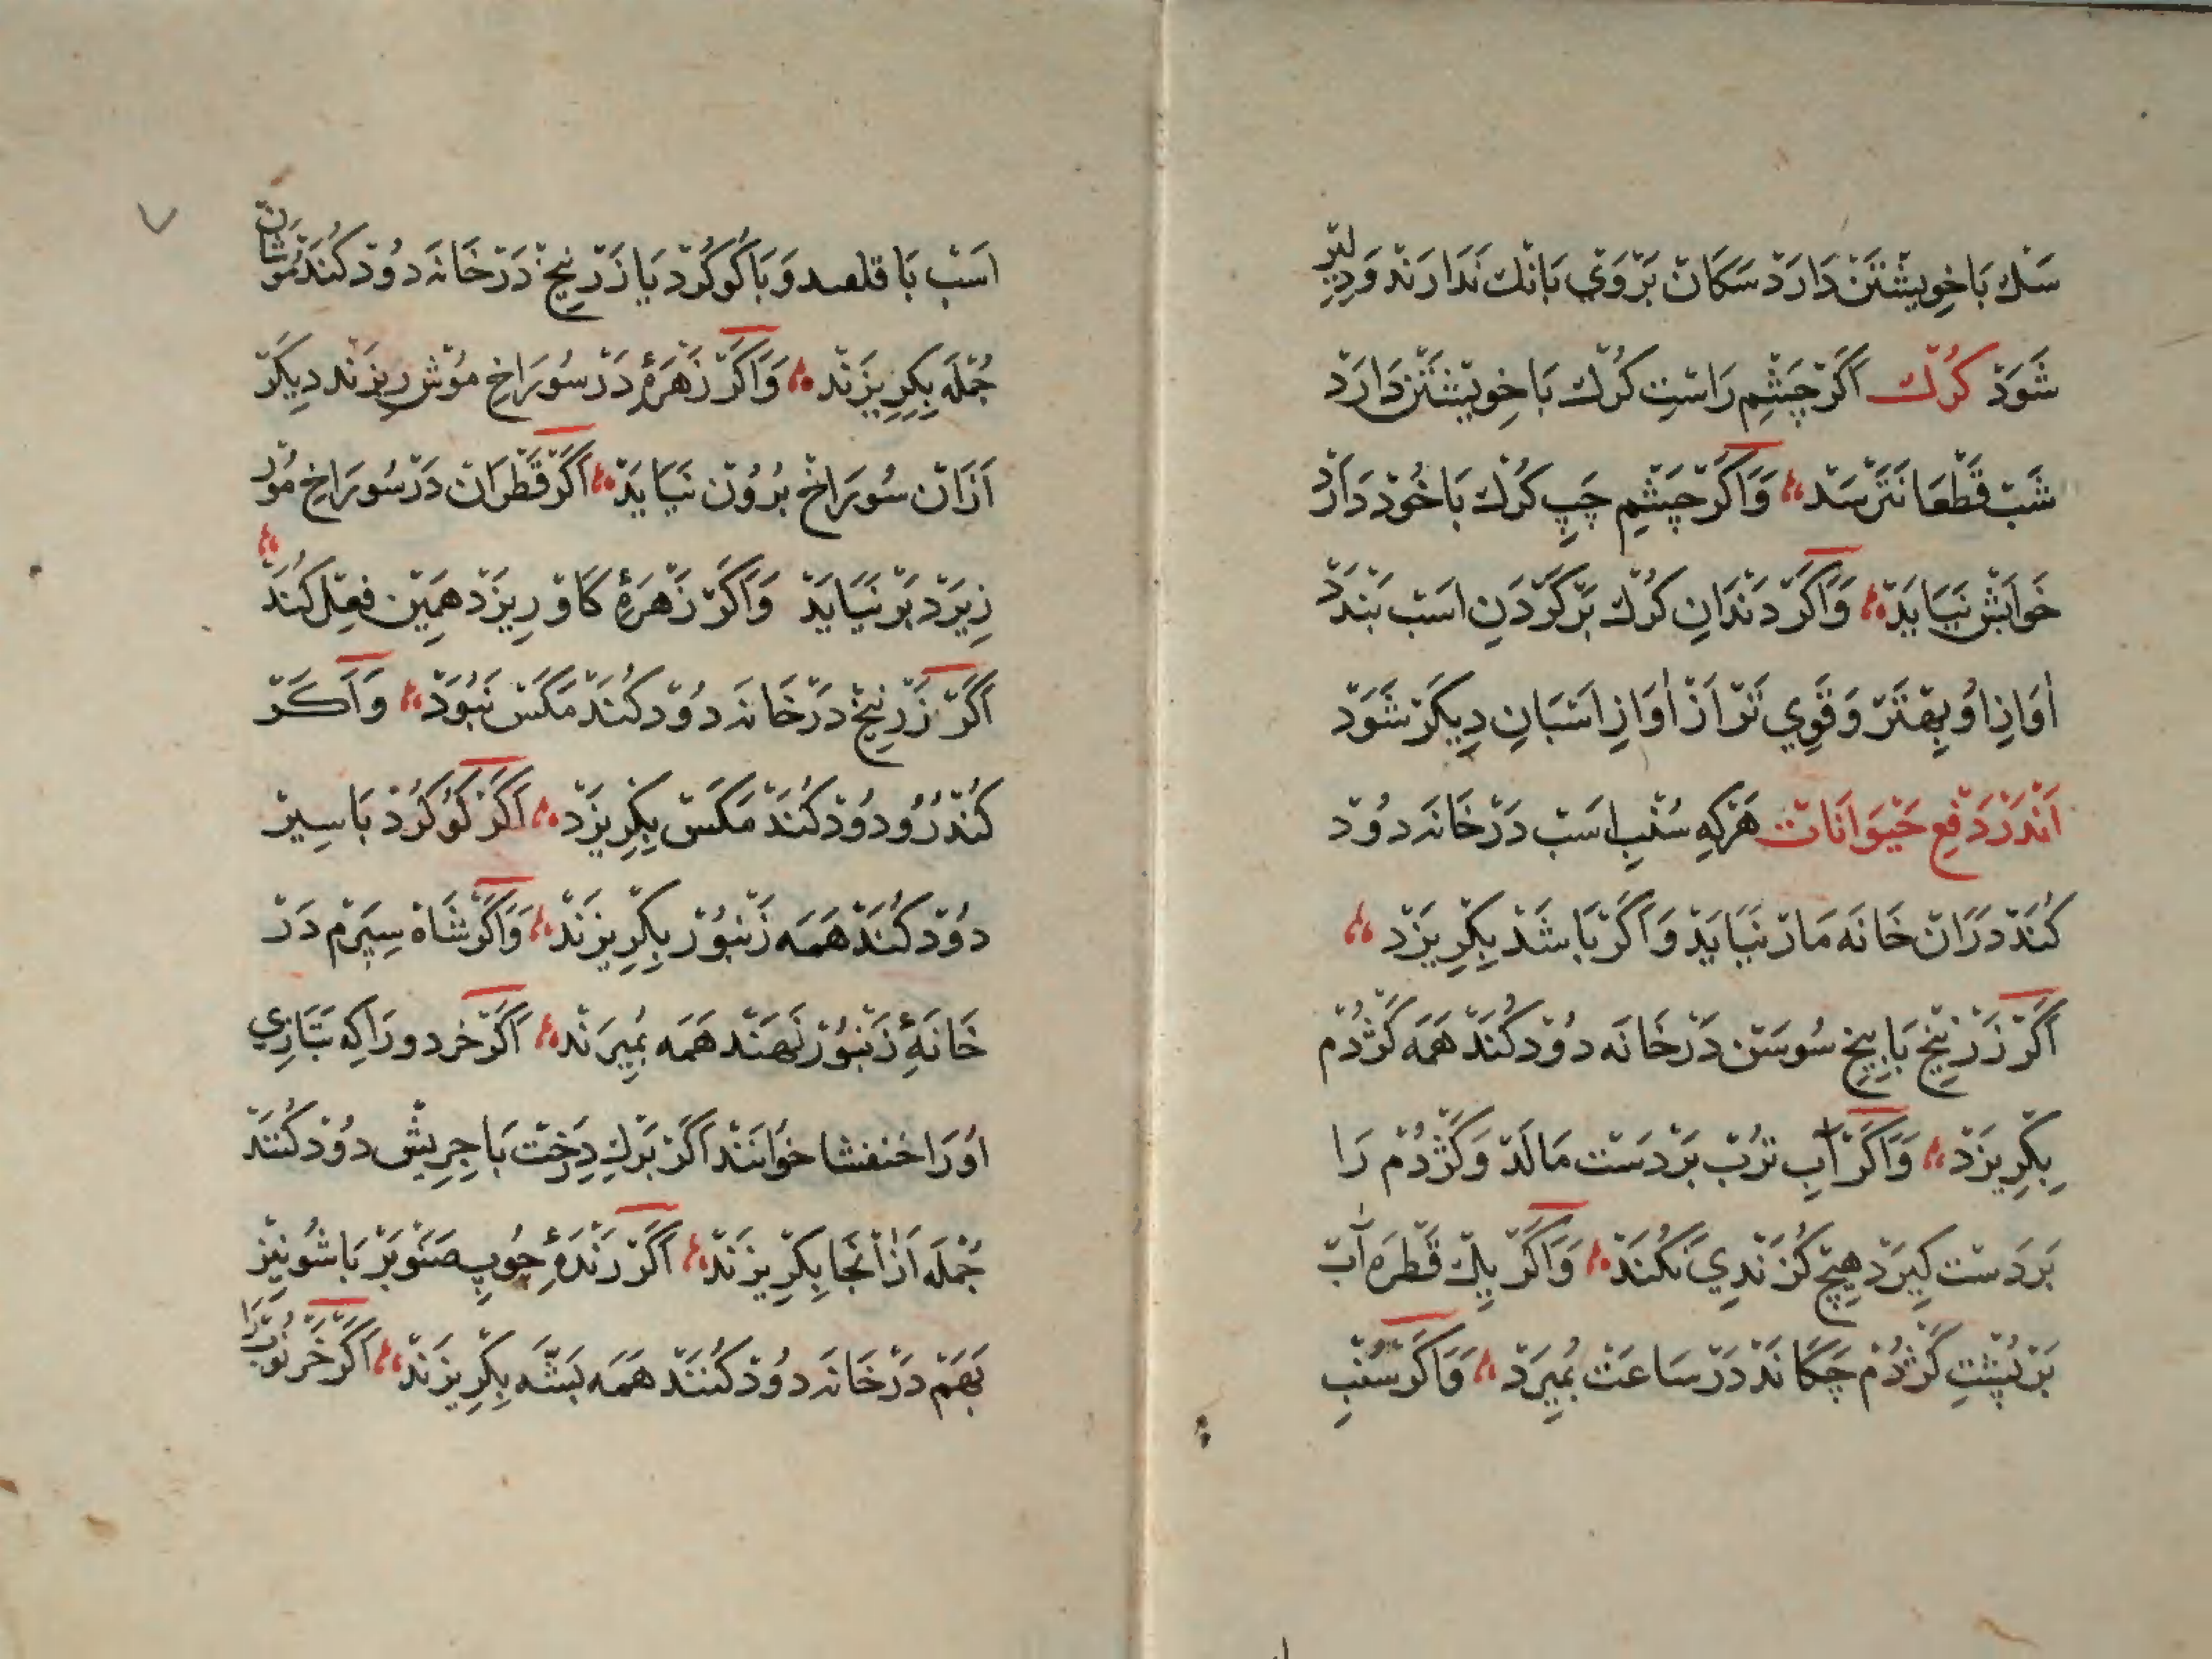 سَك بَا خِویشْتَنْ دَارَدْ سَكَانْ بَرْوَيْ بَانْك نَدَارَنْدْ وَدِلِیرْ
شَوَدْ كُرْك اَكَرْ چَشْمِ رَاسْتِ كُرْك بَا خِویشْتَنْ دَارَدْ
شَبْ قَطْعَا نَتَرْسَدْ وَاَكَرْ چَشْمِ چَپِ كُرْك بَا خُوْد دَارَدْ
خَوَابَشْ نَیَایَدْ وَاَكَرْ دَنْدَانِ كُرْك بَرْ كَرْدَنِ اسَبْ بَنْدَدْ
اٰوَازِ اُو بِهْتَرْ وَقَوِي تَرْ اَزْ اٰوَازِ اَسْبَانِ دِیكَرْ شَوَدْ
اَنْدَرْ دَفْعِ حَیْوَانَاتْ هَرْكِه سُنْبِ اسَبْ دَرْ خَانَه دُوْد
كُنَدْ دَرَانْ خَانَه مَارْ نَیَایَدْ وَاَكَرْ بَاشَدْ بِكِرِیزَدْ
اَكَرْ زَرْنِیخْ بَا بِیخِ سُوسَنْ دَرْ خَانَه دُوْد كُنَدْ هَمَه كَژْدُمْ
بِكِرِیزَدْ وَاَكَرْ آبِ تُرُبْ بَرْ دَسْت مَالَدْ وَكَژْدُمْ رَا
بَرْدَسْت كِیرَدْ هِیچْ كُزَنْدِيْ نَكُنَدْ وَاَكَرْ یِكْ قَطْرَه آبْ
بَرْ پُشْتِ كَژْدُمْ چَكَانَدْ دَرْ سَاعَتْ بِمُیرَدْ وَاَكَرْ سُنْبِ
اسَبْ بَا قلعىد وَبَا كُوكُرْدْ یَا زَرْنِیخْ دَرْ خَانَه دُوْد كُنَنْدْ مُوشَانْ
جُمْلَه بِكِرِیزَنْدْ وَاَكَرْ زَهْرَهٔ دَرْ سُورَاخِ مُوْشْ رِیزَنْد دِیكَرْ
اَزَانْ سُورَاخْ بُرُوْنْ نَیَایَدْ اَكَرْ قَطْرَانْ دَرْ سُورَاخِ مُوْر
رِیزَدْ بَرْ نَیَایَدْ وَاَكَرْ زَهْرَهٔ كَاوْ رِیزَدْ هَمِیْن فِعْل كُنَدْ
اَكَرْ زَرْنِیخْ دَرْ خَانَه دُوْد كُنَنْد مَكَسْ نَبُوَدْ وَاَكَرْ
كُنْدُرُو دُوْد كُنَنْد مَكَسْ بِكِرِیزَدْ اَكَرْ كُوكُرْدْ بَا سِیرْ
دُوْد كُنَنْد هَمَه زَنْبُوْر بِكِرِیزَنْدْ وَاَكَرْ شَاهْ سِپَرَمْ دَرْ
خَانَهٔ زَنْبُوْر نَهَنْد هَمَه بِمُیرَنْدْ اَكَرْ خردورَا كِه بَتَازِي
اُوْرَا خنفشا خوَانَنْد اَكَرْ بَرْكِ دِرَخْت بَا جِرِیشْ دُوْد كُنَنْدْ
جُمْلَه اَزْ اٰنْجَا بِكِرِیزَنْدْ اَكَرْ رَنْدَهٔ چُوبِ صَنَوبَرْ بَا شُونِیزْ
بَهَمْ دَرْ خَانَه دُوْد كُنَنْدْ هَمَه پَشَّه بِكِرِیزَنْدْ اَكَرْ خَرْنُوبْ رَا